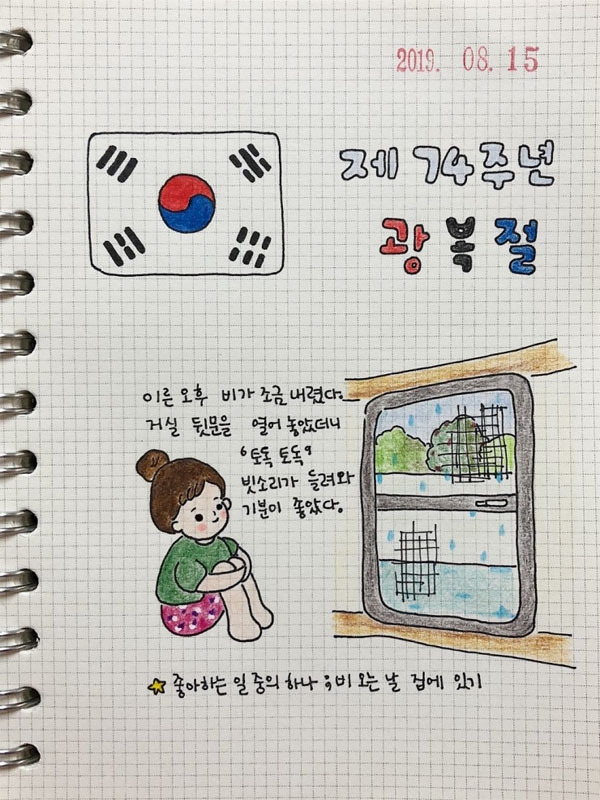 2019. 08. 15
제 74주년
광복절
이른 오후 비가 조금 내렸다.
거실 뒷문을 열어 놓았더니
"토독 토독"
빗소리가 들려와
기분이 좋았다.
좋아하는 일 중의 하나 ; 비 오는 날 집에 있기